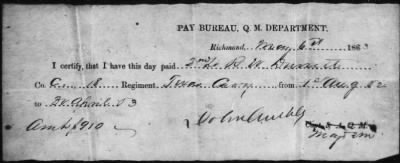 PAY BUREAU, Q. M. DEPARTMENT.
Richmond, May 6th 1863
I certify, that I have this day paid 2nd Lt R. W.
Co. 18 Regiment, Texas Cavy from 1st Aug 62
to 28 63
Amt $910 John Ambler
Maj & QM